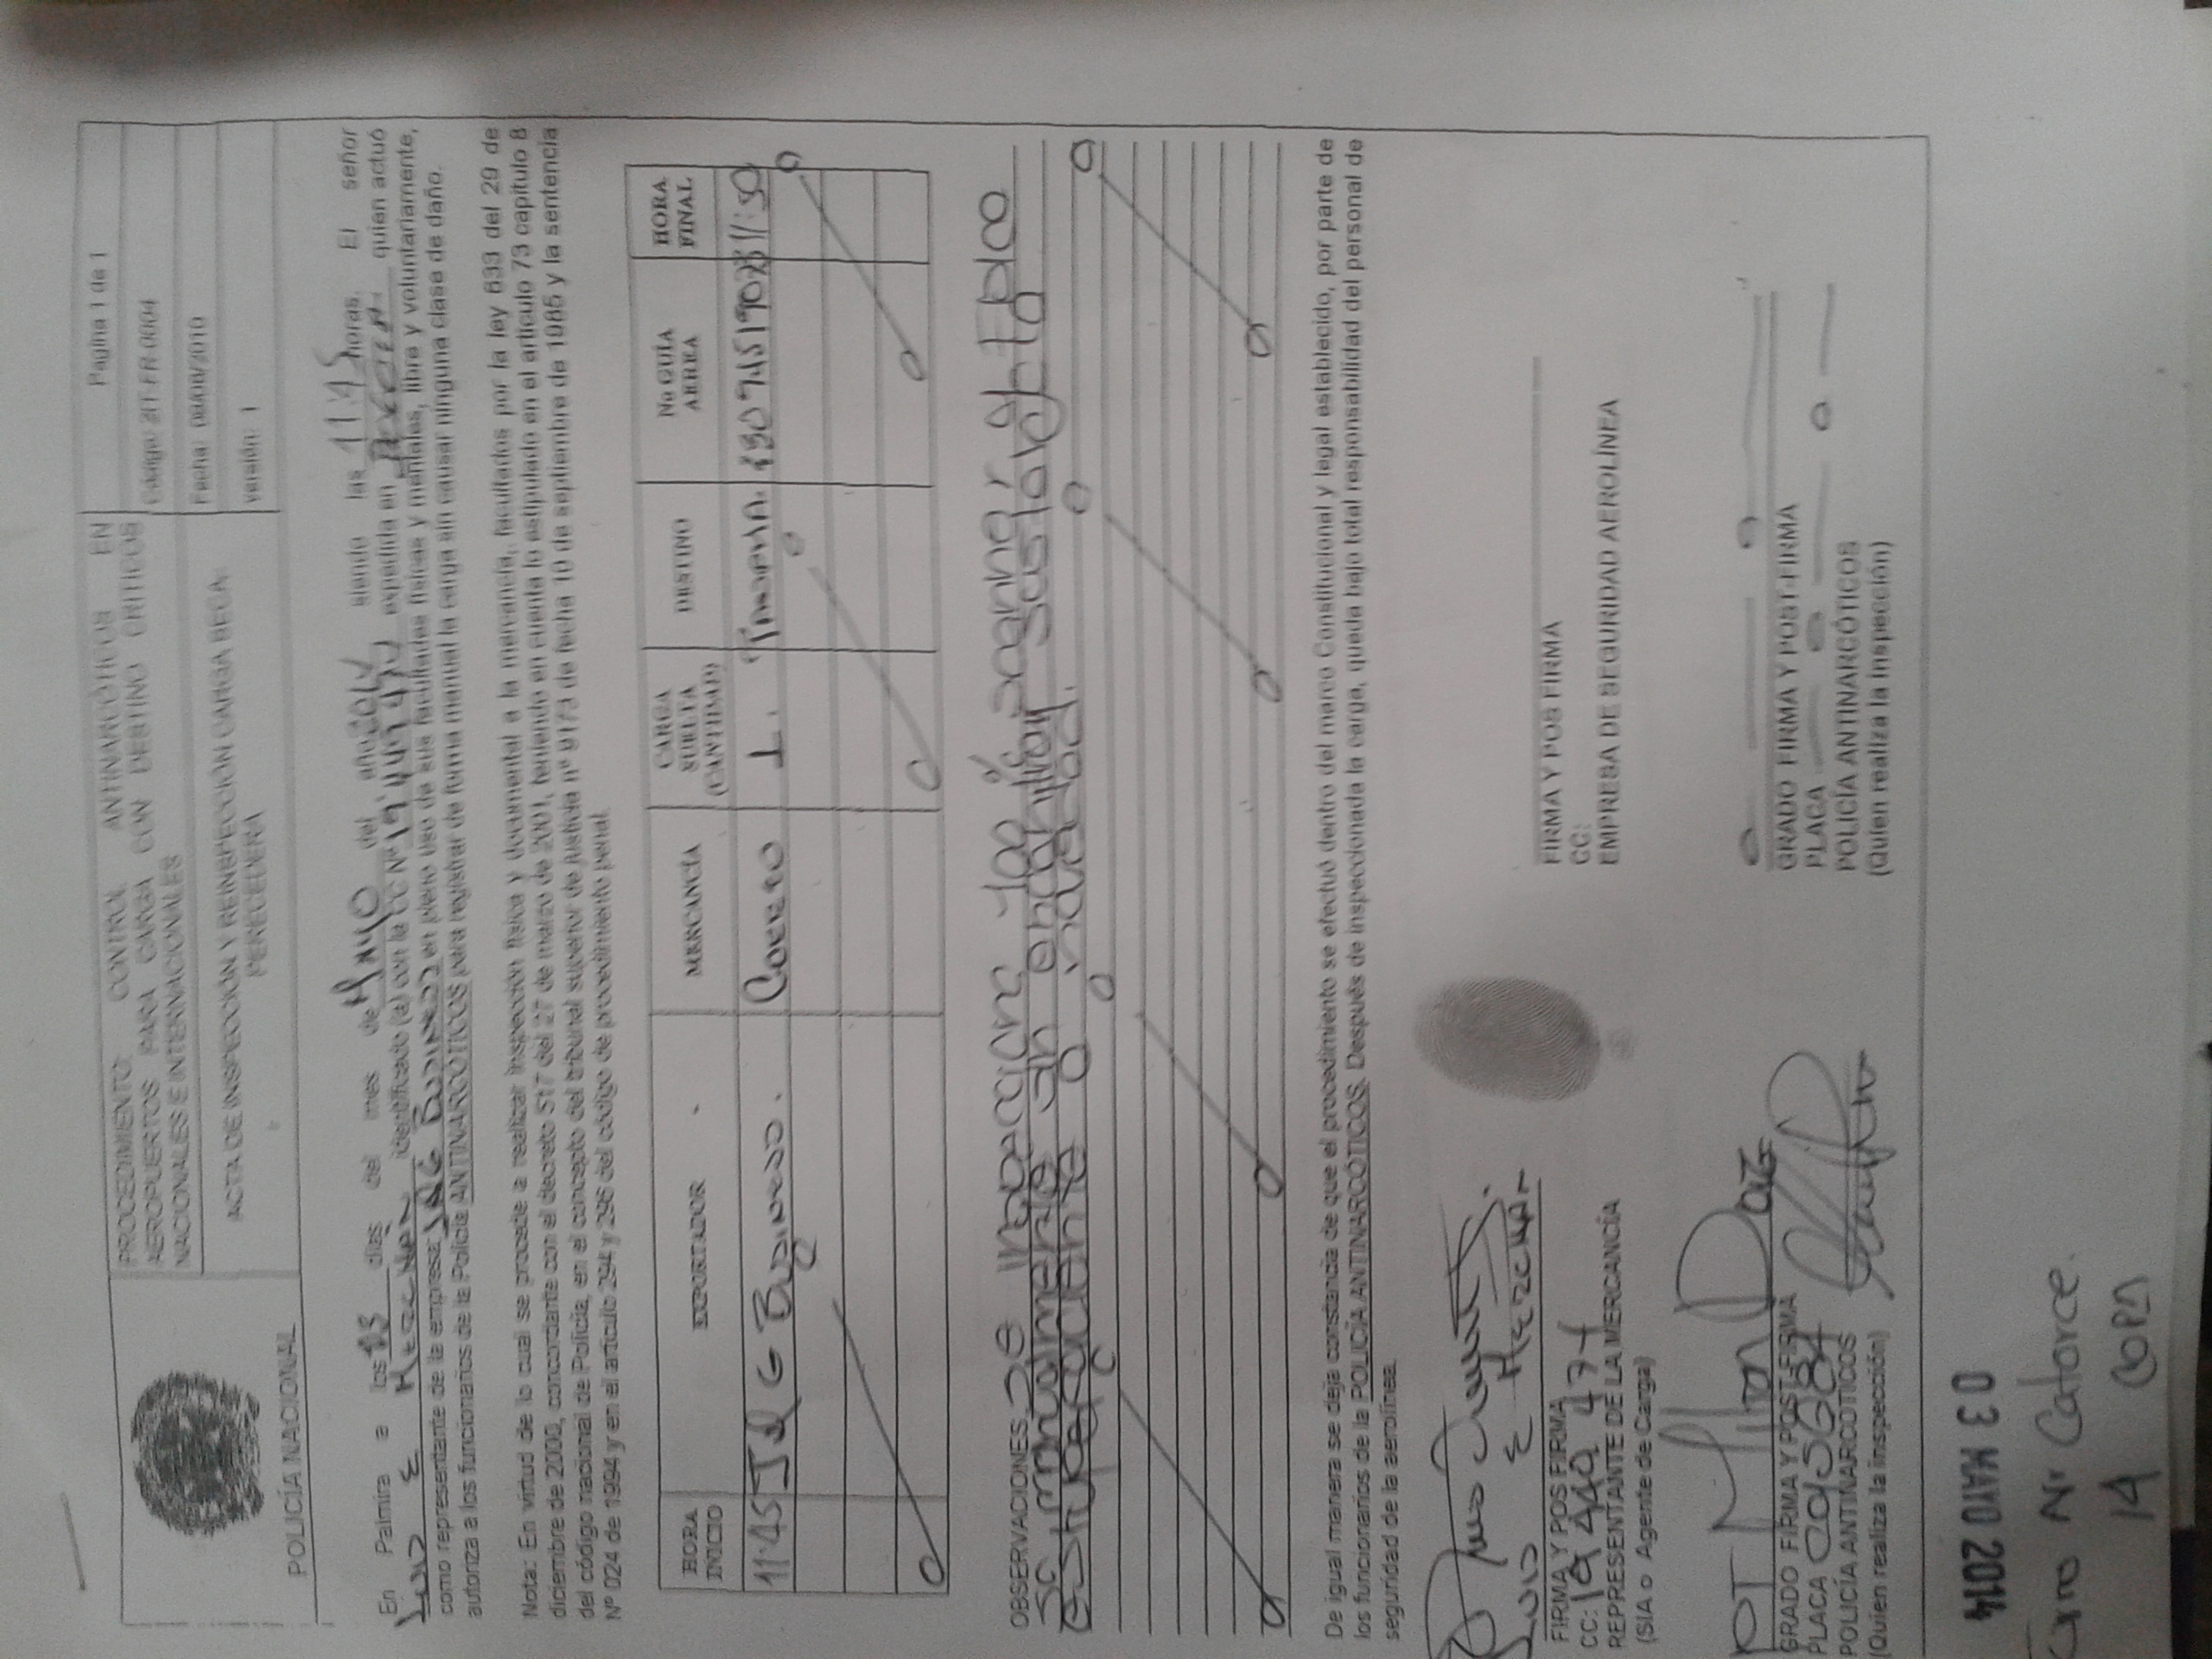 POLICÍA NACIONAL
PROCEDIMIENTO: CONTROL ANTINARCÓTICOS EN
AEROPUERTOS PARA CARGA CON DESTINO CRITICOS
NACIONALES E INTERNACIONALES
ACTA DE INSPECCIÓN Y REINSPECCIÓN CARGA SECA
PERECEDERA
Pagina 1 de 1
Código: 2IT-FR-0004
Fecha: 09/08/2010
versión: 1
En Palmira a los 03 días del mes de Mayo del año 2014 siendo las 11:45 horas. El señor
Luis E Merchan identificado (a) con la CC Nº 19 449 474 expedida en quien actuó
como representante de la empresa: J&G Business en pleno uso de sus facultades físicas y mentales, libre y voluntariamente,
autoriza a los funcionarios de la Policía ANTINARCÓTICOS para registrar de forma manual la carga sin causar ninguna clase de daño.
Nota: En virtud de lo cual se procede a realizar inspección física y documental a la mercancía, facultados por la ley 633 del 29 de
diciembre de 2000, concordante con el decreto 517 del 27 de marzo de 2001, teniendo en cuenta lo estipulado en el artículo 73 capítulo 8
del código nacional de Policía, en el concepto del tribunal superior de justicia nº 9173 de fecha 10 de septiembre de 1985 y la sentencia
Nº 024 de 1994 y en el artículo 294 y 296 del código de procedimiento penal.
HORA INICIO EXPORTADOR MERCANCÍA CARGA SUELTA (CANTIDAD) DESTINO No GUÍA AEREA HORA FINAL
11:45 J&G Business. Correo 1. 11:50
OBSERVACIONES se inspecciona 100 % scanner y Fisico
manualmente sin encontrar sustancia
estupefaciente o
De igual manera se deja constancia de que el procedimiento se efectuó dentro del marco Constitucional y legal establecido, por parte de
los funcionarios de la POLICÍA ANTINARCÓTICOS. Después de inspeccionada la carga, queda bajo total responsabilidad del personal de
seguridad de la aerolínea.
Luis E Merchan
FIRMA Y POS FIRMA
CC: 19 449 474
REPRESENTANTE DE LA MERCANCÍA
(SIA o Agente de Carga)
FIRMA Y POS FIRMA
CC:
EMPRESA DE SEGURIDAD AEROLÍNEA
PT Milton Daz
GRADO FIRMA Y POST-FIRMA
PLACA 095684
POLICÍA ANTINARCÓTICOS
(Quien realiza la inspección)
GRADO FIRMA Y POST-FIRMA
PLACA
POLICÍA ANTINARCÓTICOS
(Quien realiza la inspección)
03 MAYO 2014
Nr Catorce.
14 COPA